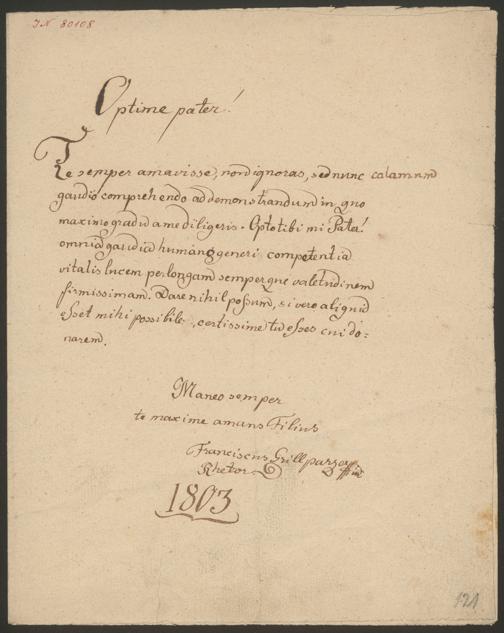 JN 80108
Optime pater!
Te semper amavisse, non ignoras, sed nunc calamum
gaudio comprehendo ad demonstrandum in quo
maximo gradu a me diligeris. Opto tibi mi Pater!
omnia gaudia humano generi competentia
vitalis lucem perlongam semperque valetudinem
firmissimam. Dare nihil possum, si vero aliquid
esset mihi possibile, certissime tu esses cui do=
narem.
Maneo semper
te maxime amans Filius
Franciscus Grillparzer
Rhetor
1803
121